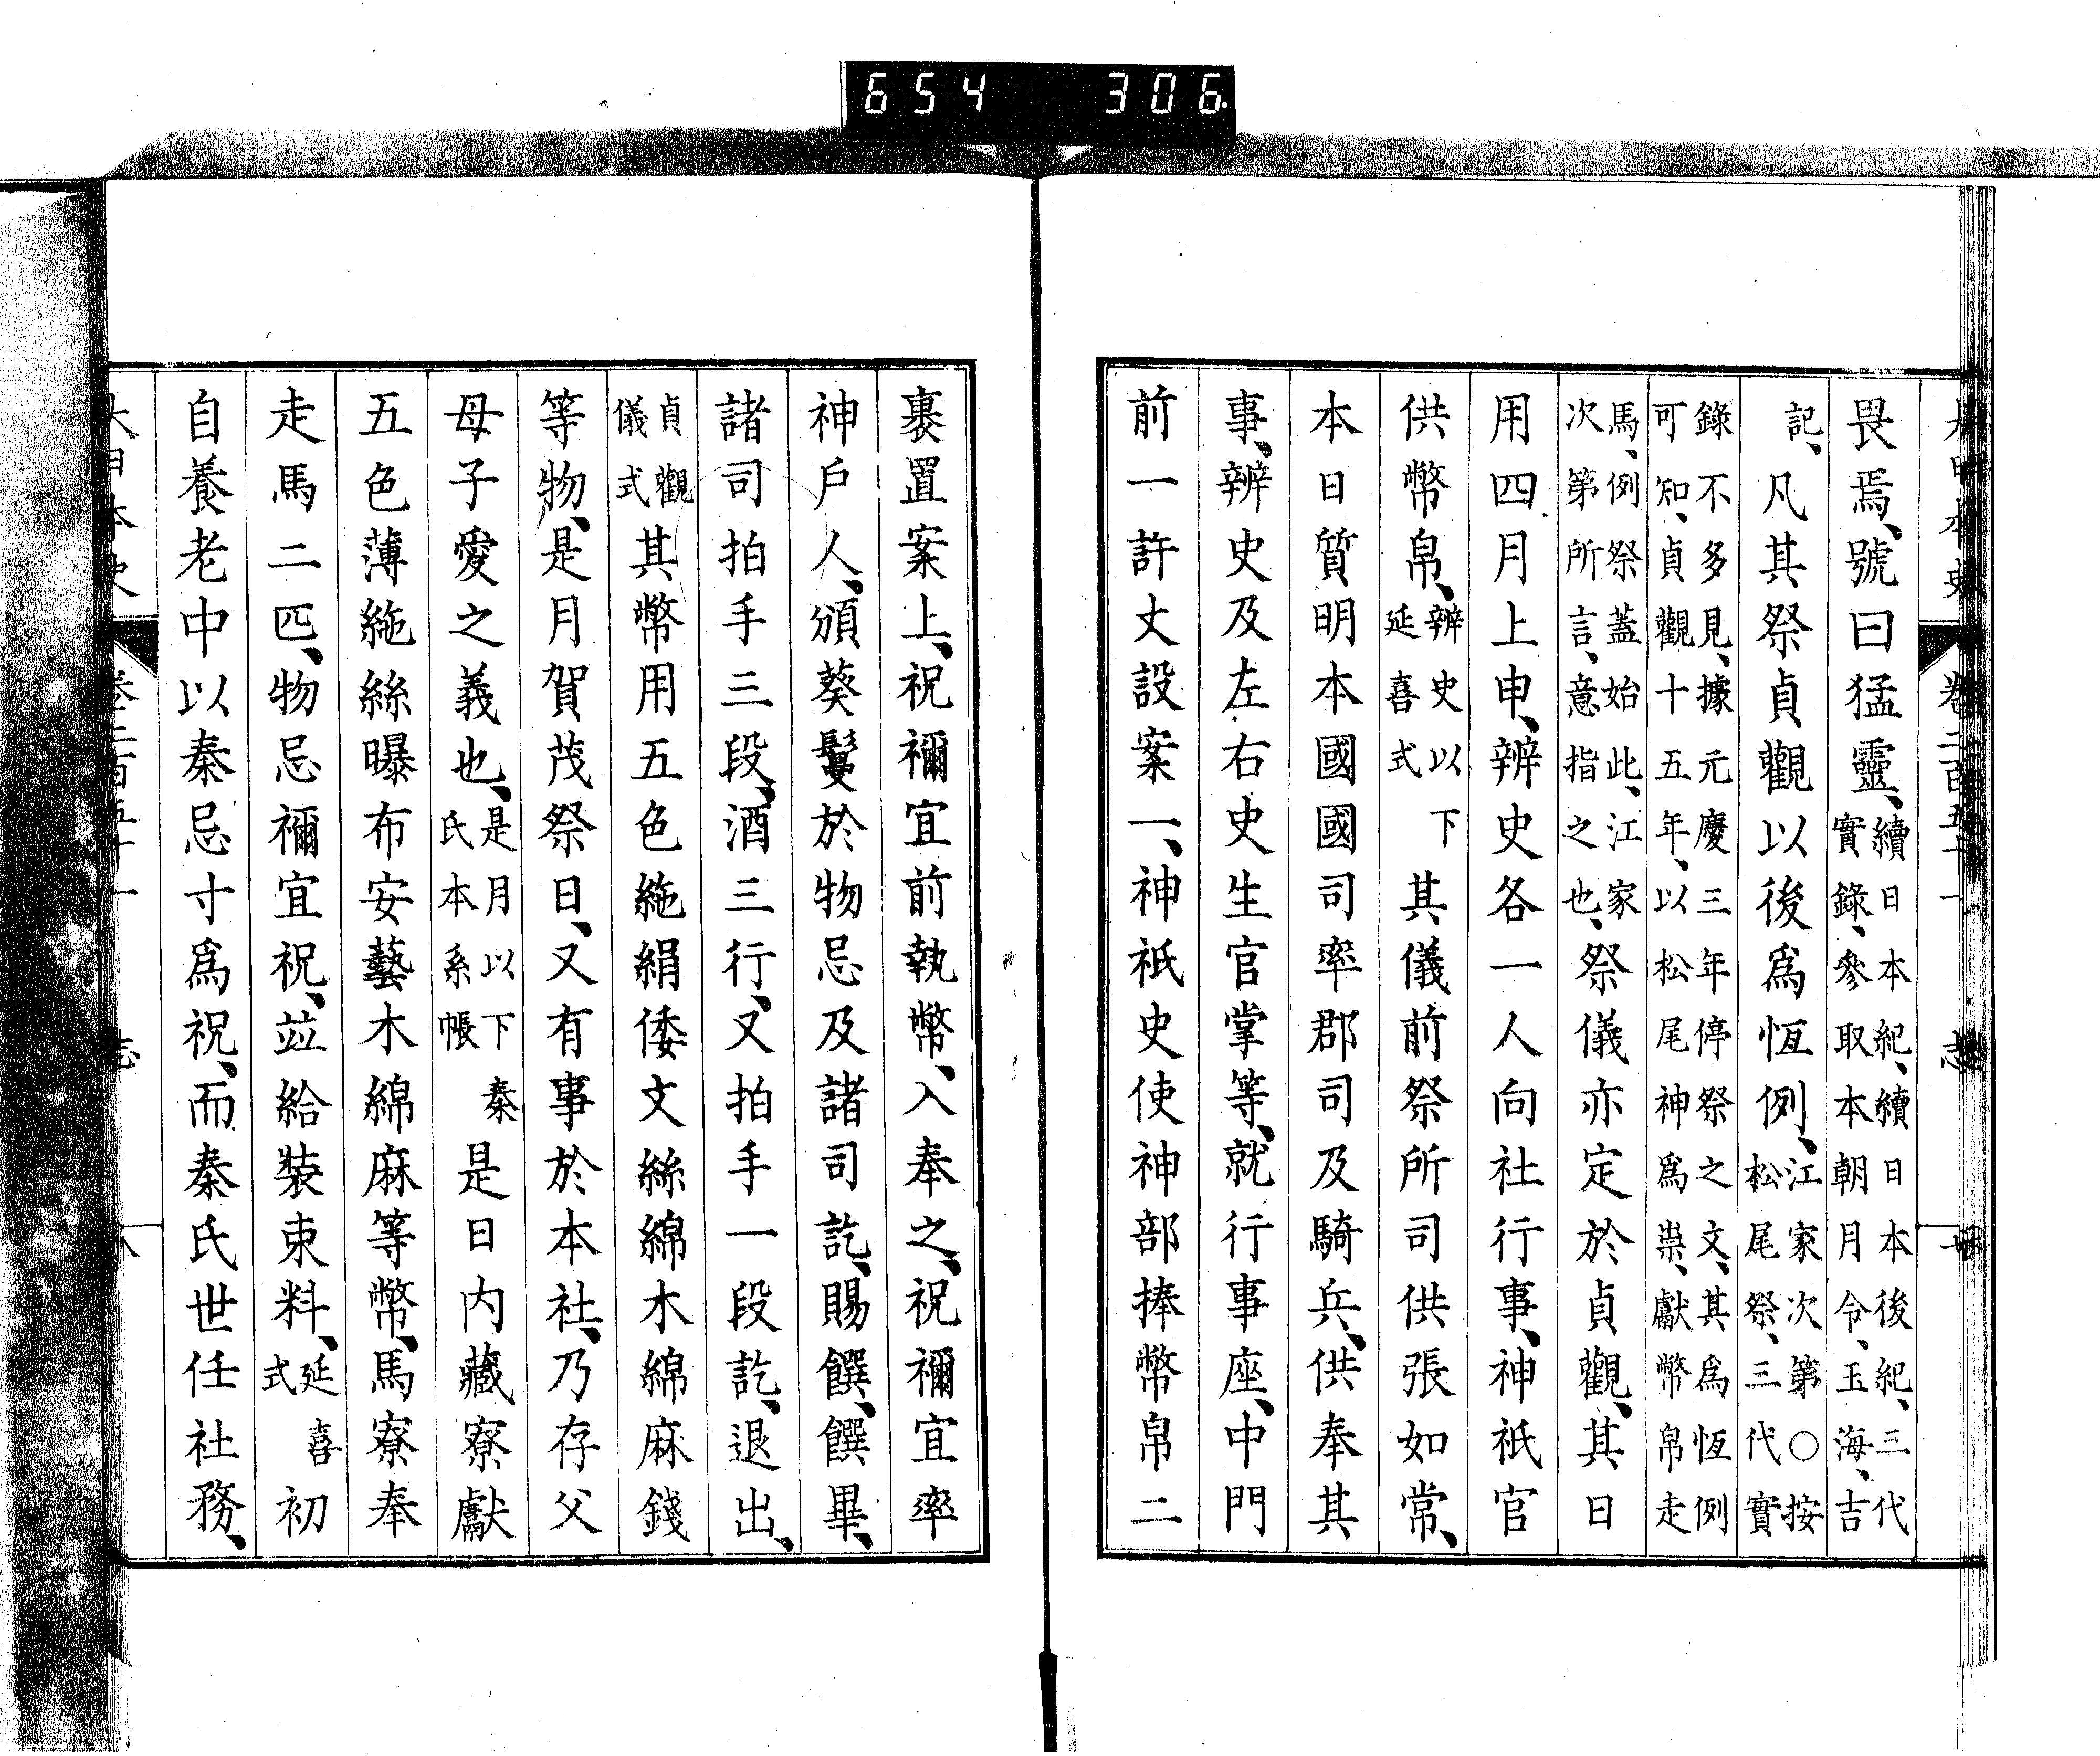 654 306
畏焉、號曰猛靈、續日本紀、續日本後紀、三代實錄、參取本朝月令、玉海、吉
記、凡其祭貞觀以後爲恆例、江家次第○按松尾祭、三代實
錄不多見、據元慶三年停祭之文、其爲恆例可知、貞觀十五年、以松尾神爲祟、獻幣帛走
馬、例祭蓋始此、江家次第所言、意指之也、祭儀亦定於貞觀、其日
用四月上申、辨史各一人向社行事、神祇官
供幣帛、辨史以下延喜式其儀前祭所司供張如常、
本日質明本國國司率郡司及騎兵、供奉其
事、辨史及左右史生官掌等、就行事座、中門
前一許丈設案一、神祇史使神部捧幣帛二
裹置案上、祝禰宜前執幣、入奉之、祝禰宜率
神戶人、頒葵鬘於物忌及諸司訖、賜饌、饌畢、
諸司拍手三段、酒三行、又拍手一段訖、退出、
貞觀儀式其幣用五色絁絹倭文絲綿木綿麻錢
等物、是月賀茂祭日、又有事於本社、乃存父
母子愛之義也、是月以下秦氏本系帳是日內藏寮獻
五色薄絁絲曝布安藝木綿麻等幣、馬寮奉
走馬二匹、物忌禰宜祝、竝給裝束料、延喜式初
自養老中以秦忌寸爲祝、而秦氏世任社務、